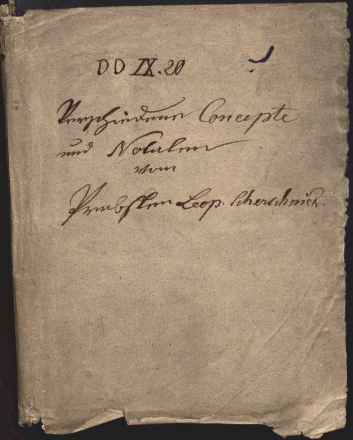 DD IX. 20
Verschiedene Concepte
und Notaten
vom
Probsten Leop. Scherschnick.